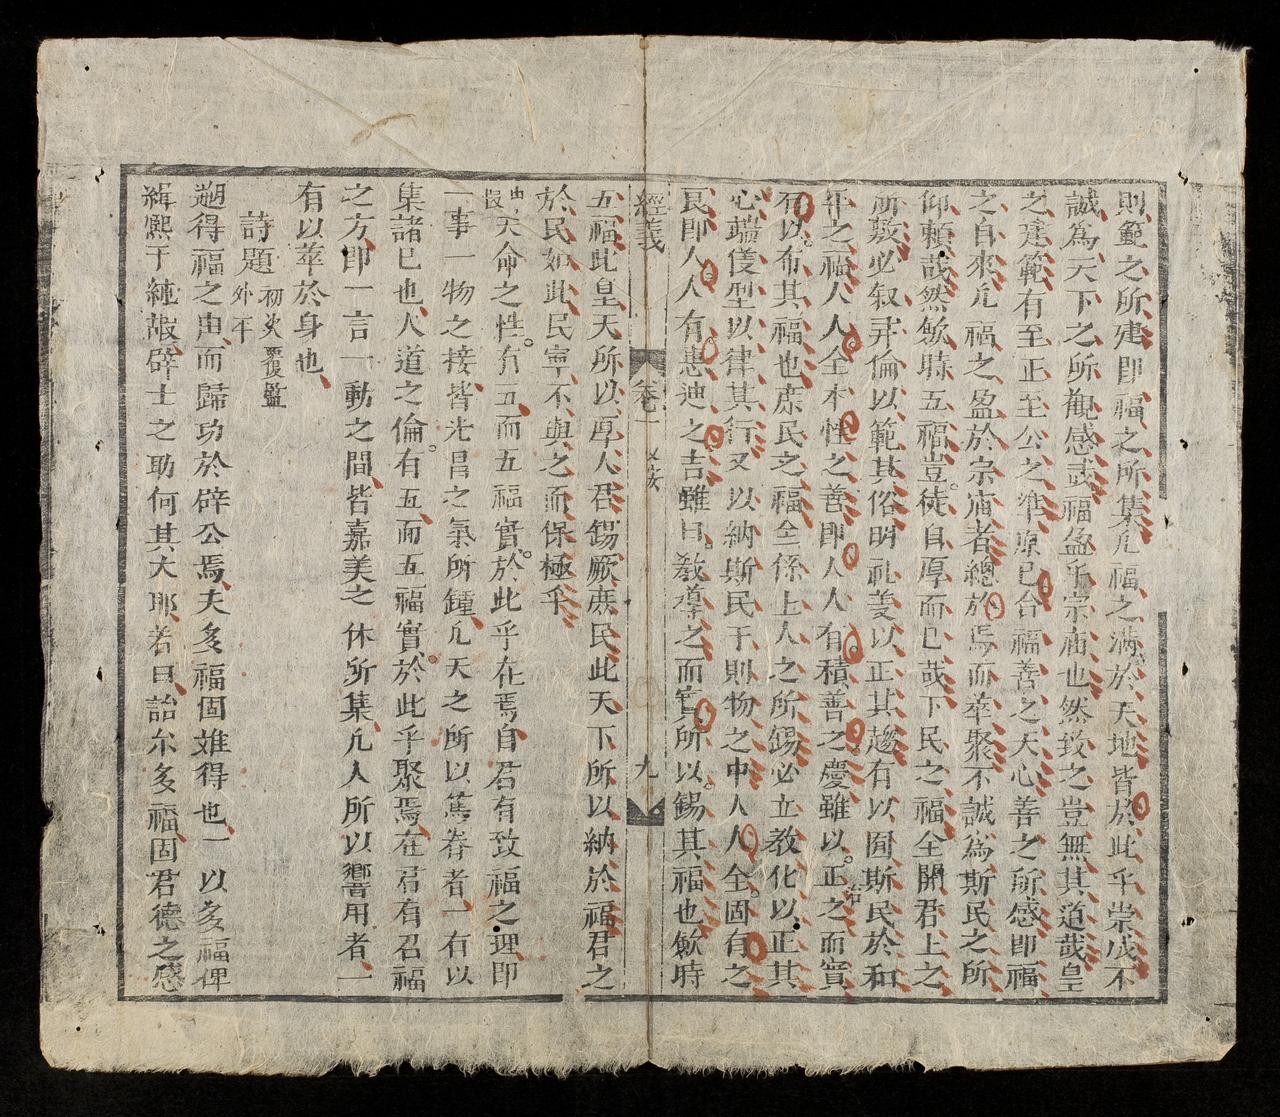 則範之所建即福之所集凡福之滿於天地皆於此乎崇成不
誠為天下之所觀感哉福盈乎宗庙也然致之豈無其道哉皇
之建範有至正至公之準原已合福善之天心善之所感即福
之自來凡福之盈於宗庙者總於焉而萃聚不誠為斯民之所
仰頼哉然歛時五福豈徒自厚而已哉下民之福全関君上之
所敷必叙彛倫以範其俗明礼義以正其趨有以囿斯民於和
年之福人人全本性之善即人人有積善之慶雖以正之而實
有以布其福也庶民之福全係上人之所錫必立教化以正其
心端儀型以律其行又以納斯民于則物之中人人全固有之
良即人人有惠迪之吉雖曰教導之而實所以錫其福也歛時
經義 卷一 九
五福此皇天所以厚人君錫厥庶民此天下所以納於福君之
於民如此民寧不與之而保極乎
中股 天命之性有五而五福實於此乎在焉自君有致福之理即
一事一物之接皆光昌之氣所鍾凡天之所以篤眷者一有以
集諸已也人道之倫有五而五福實於此乎聚焉在君有召福
之方即一言一動之間皆嘉美之休所集凡人所以響用者一
有以萃於身也
詩題 初炎覆監外平
遡得福之由而歸功於辟公焉夫多福固难得也一以多福俾
緝熙于純嘏辟士之助何其大耶若曰詒尔多福固君德之感